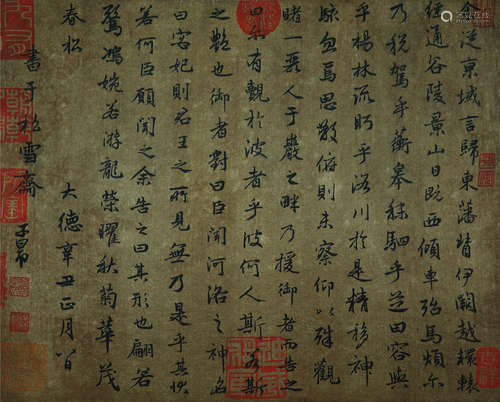 余從京域言歸東藩背伊闕越轘轅
經通谷陵景山日既西傾車殆馬煩尔
乃税駕乎蘅皋秣駟乎芝田容與
乎楊林流眄乎洛川於是精移神
駭忽焉思散俯則未察仰以殊觀
睹一麗人于巖之畔乃援御者而告之
曰尔有覿於彼者乎彼何人斯若斯
之艷也御者對曰臣聞河洛之神名
曰宓妃則君王之所見無乃是乎其狀
若何臣願聞之余告之曰其形也翩若
驚鴻婉若游龍榮曜秋菊華茂
春松
大德辛丑正月八日
書于松雪齋
子昂